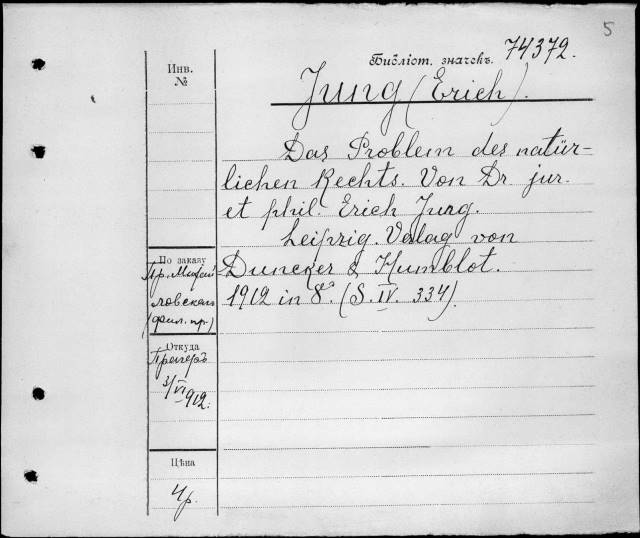 5
Библіот. значекъ. 74372.
Инв.
№
Jung (Erich).
Das Problem des natür-
lichen Rechts. Von Dr. jur.
et phil. Erich Jung.
Leipzig. Valag von
Duncker & Humblot.
1912 in 8°. (S. IV. 334).
По заказу
Пр. Михай
ловскаго
(фил. пр.)
Откуда
Прагеръ
3/VI 912.
Цѣна
4р.